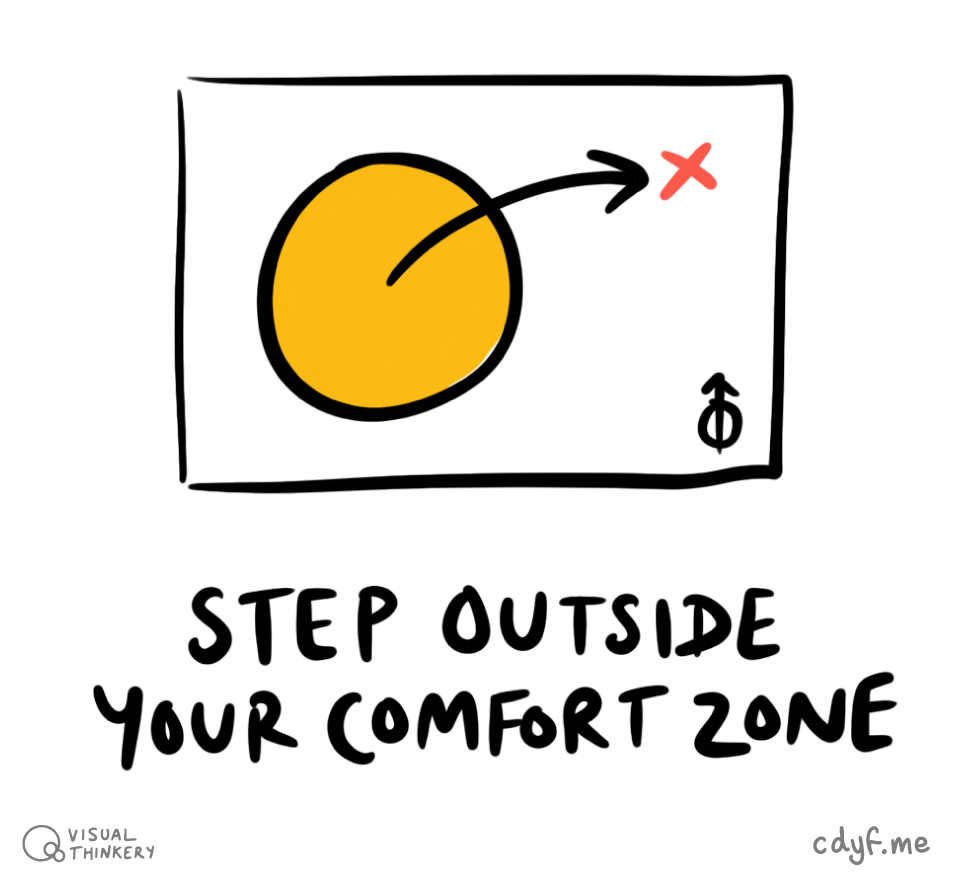 STEP OUTSIDE
YOUR COMFORT ZONE
VISUAL
THINKERY
cdyf.me